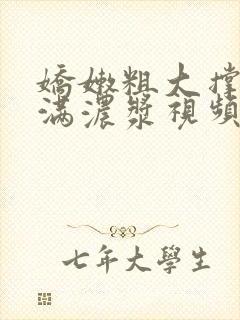 嬌嫩粗大撐
滿濃漿視頻
七年大學生